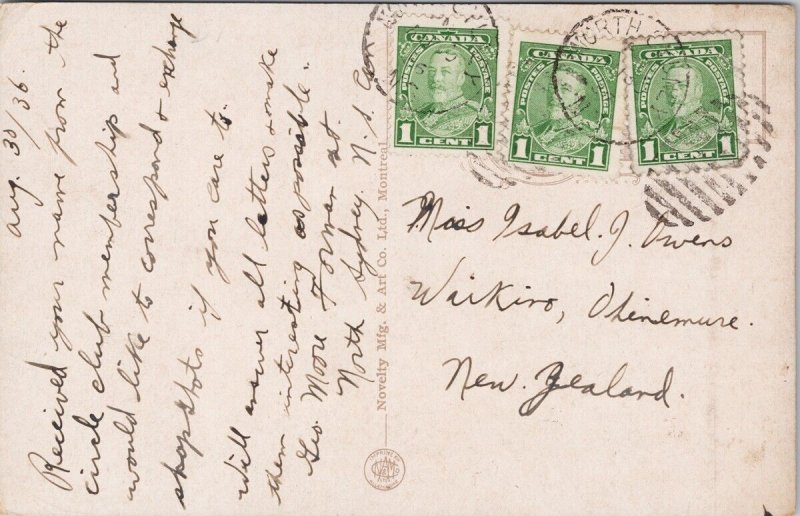 Aug. 30/36.
Received your name from the
circle club membership and
would like to correspond & exchange
snapshots if you care to.
Will answer all letters & make
them interesting as possible.
Geo. Moore Forman at.
North Sydney. N.S. Can
Novelty Mfg. & Art Co. Ltd., Montreal
CANADA
POSTES POSTAGE
1 CENT 1
CANADA
POSTES POSTAGE
1 CENT 1
CANADA
POSTES POSTAGE
1 CENT 1
NORTH
Miss Isabel. J. Owens
Waikino, Ohinemure.
New. Zealand.